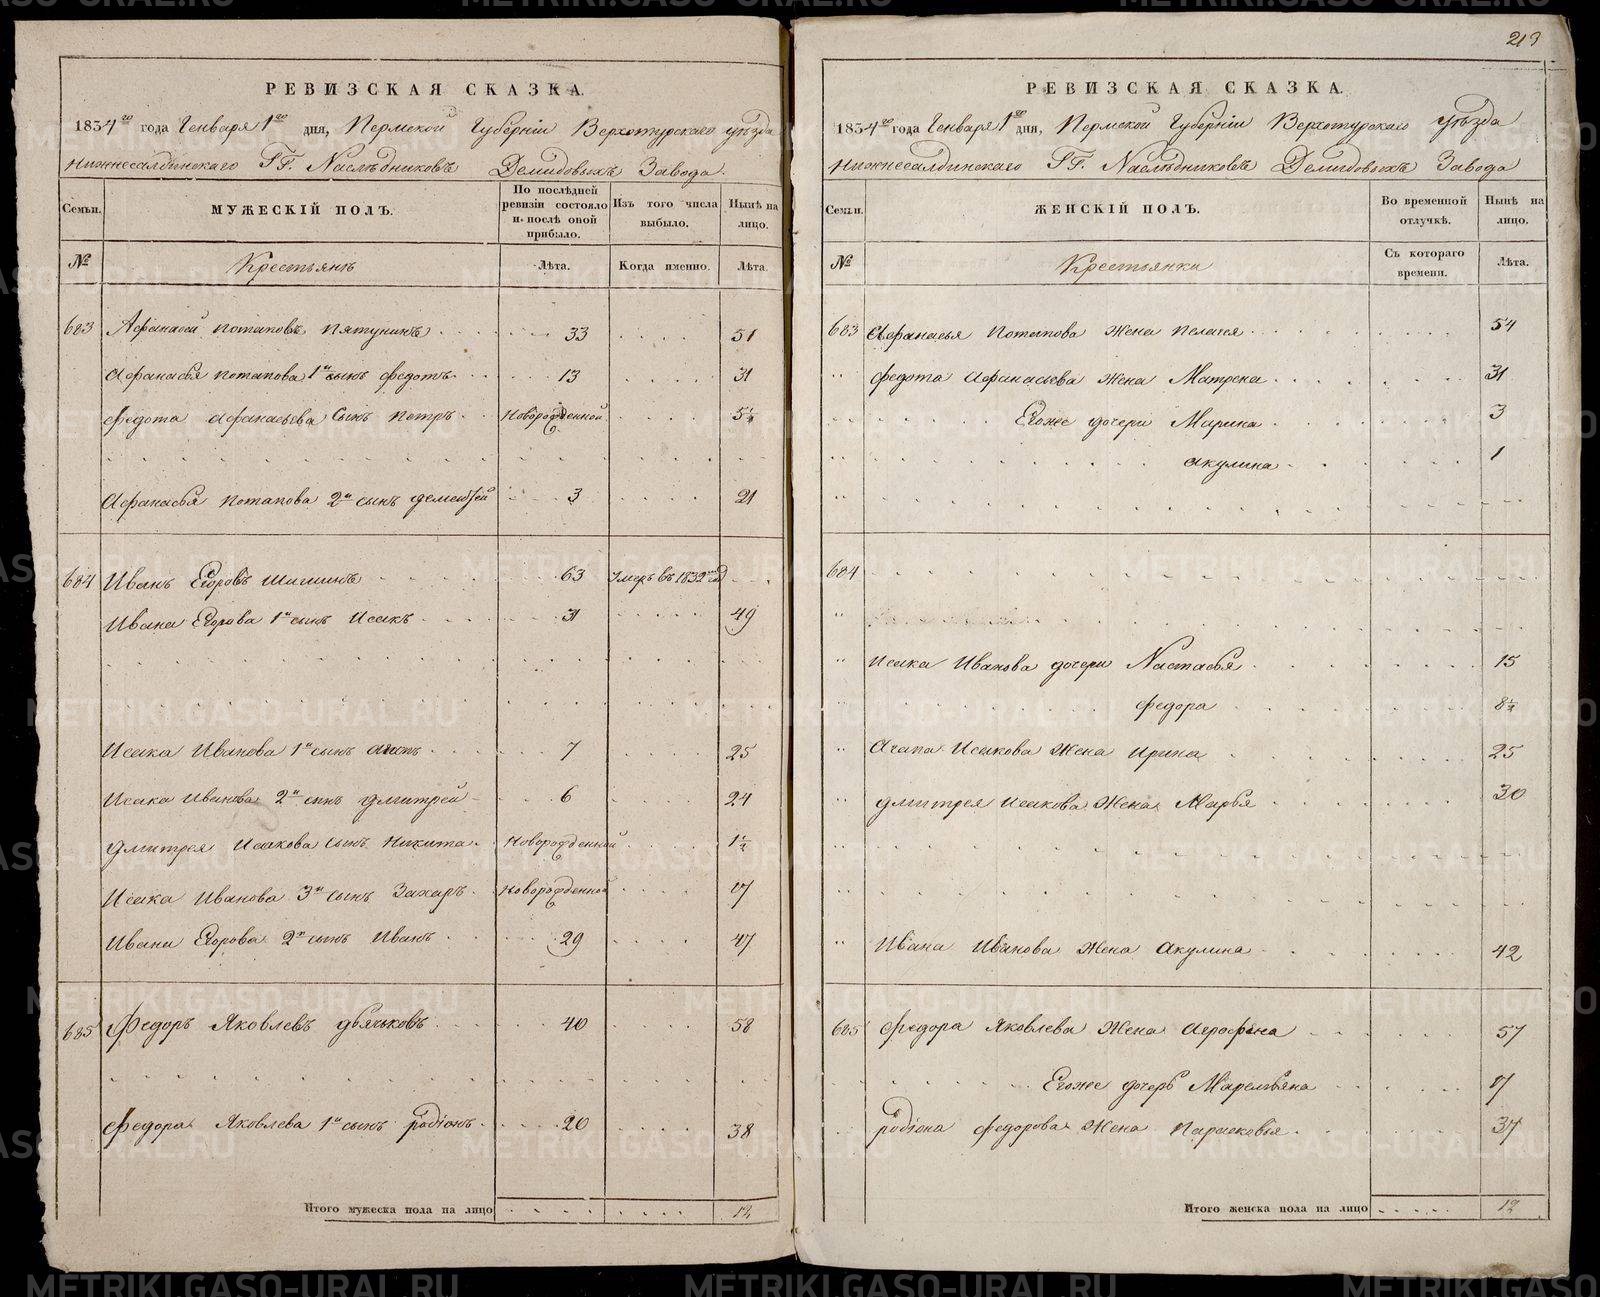 213
РЕВИЗСКАЯ СКАЗКА.
1834го года Генваря 1го дня, Пермской Губерніи Верхотурскаго уѣзда
Нижнесалдинскаго ГГ. Наслѣдниковъ Демидовыхъ Завода.
Семьи.
МУЖЕСКІЙ ПОЛЪ.
По послѣдней ревизіи состояло и послѣ оной прибыло.
Изъ того числа выбыло.
Нынѣ на лицо.
№ Крестьянъ Лѣта. Когда именно. Лѣта.
683 Афанасей Потаповъ Пятунинъ 33 51
Афанасья Потапова 1й сынъ Федотъ 13 31
Федота Афанасьева сынъ Петръ Новорожденной 5½
Афанасья Потапова 2й сынъ Дементей 3 21
684 Иванъ Егоровъ Шишинъ 63 Умеръ въ 1832мъ
Ивана Егорова 1й сынъ Исакъ 31 49
Исака Иванова 1й сынъ 7 25
Исака Иванова 2й сынъ Дмитрей 6 24
Дмитрея Исакова сынъ Никита Новорожденной 1½
Исака Иванова 3й сынъ Захаръ Новорожденной 17
Ивана Егорова 2й сынъ Иванъ 29 47
685 Федоръ Яковлевъ Дьячковъ 40 58
Федора Яковлева 1й сынъ Родіонъ 20 38
Итого мужеска пола на лицо 12
РЕВИЗСКАЯ СКАЗКА.
1834го года Генваря 1го дня, Пермской Губерніи Верхотурскаго Уѣзда
Нижнесалдинскаго ГГ. Наслѣдниковъ Демидовыхъ Завода
Семьи.
ЖЕНСКІЙ ПОЛЪ.
Во временной отлучкѣ.
Нынѣ на лицо.
№ Крестьянки Съ котораго времени. Лѣта.
683 Афанасья Потапова жена Пелагея 54
Федота Афанасьева жена Матрена 31
Егоже дочери Марина 3
Акулина 1
684
Исака Иванова дочери Настасья 15
Федора 8½
Агапа Исакова жена Ирина 25
Дмитрея Исакова жена Марья 30
Ивана Иванова жена Акулина 42
685 Федора Яковлева жена Агрофена 57
Егоже дочерь Маремьяна 17
Родіона Федорова жена Парасковья 37
Итого женска пола на лицо 12
METRIKI.GASO-URAL.RU